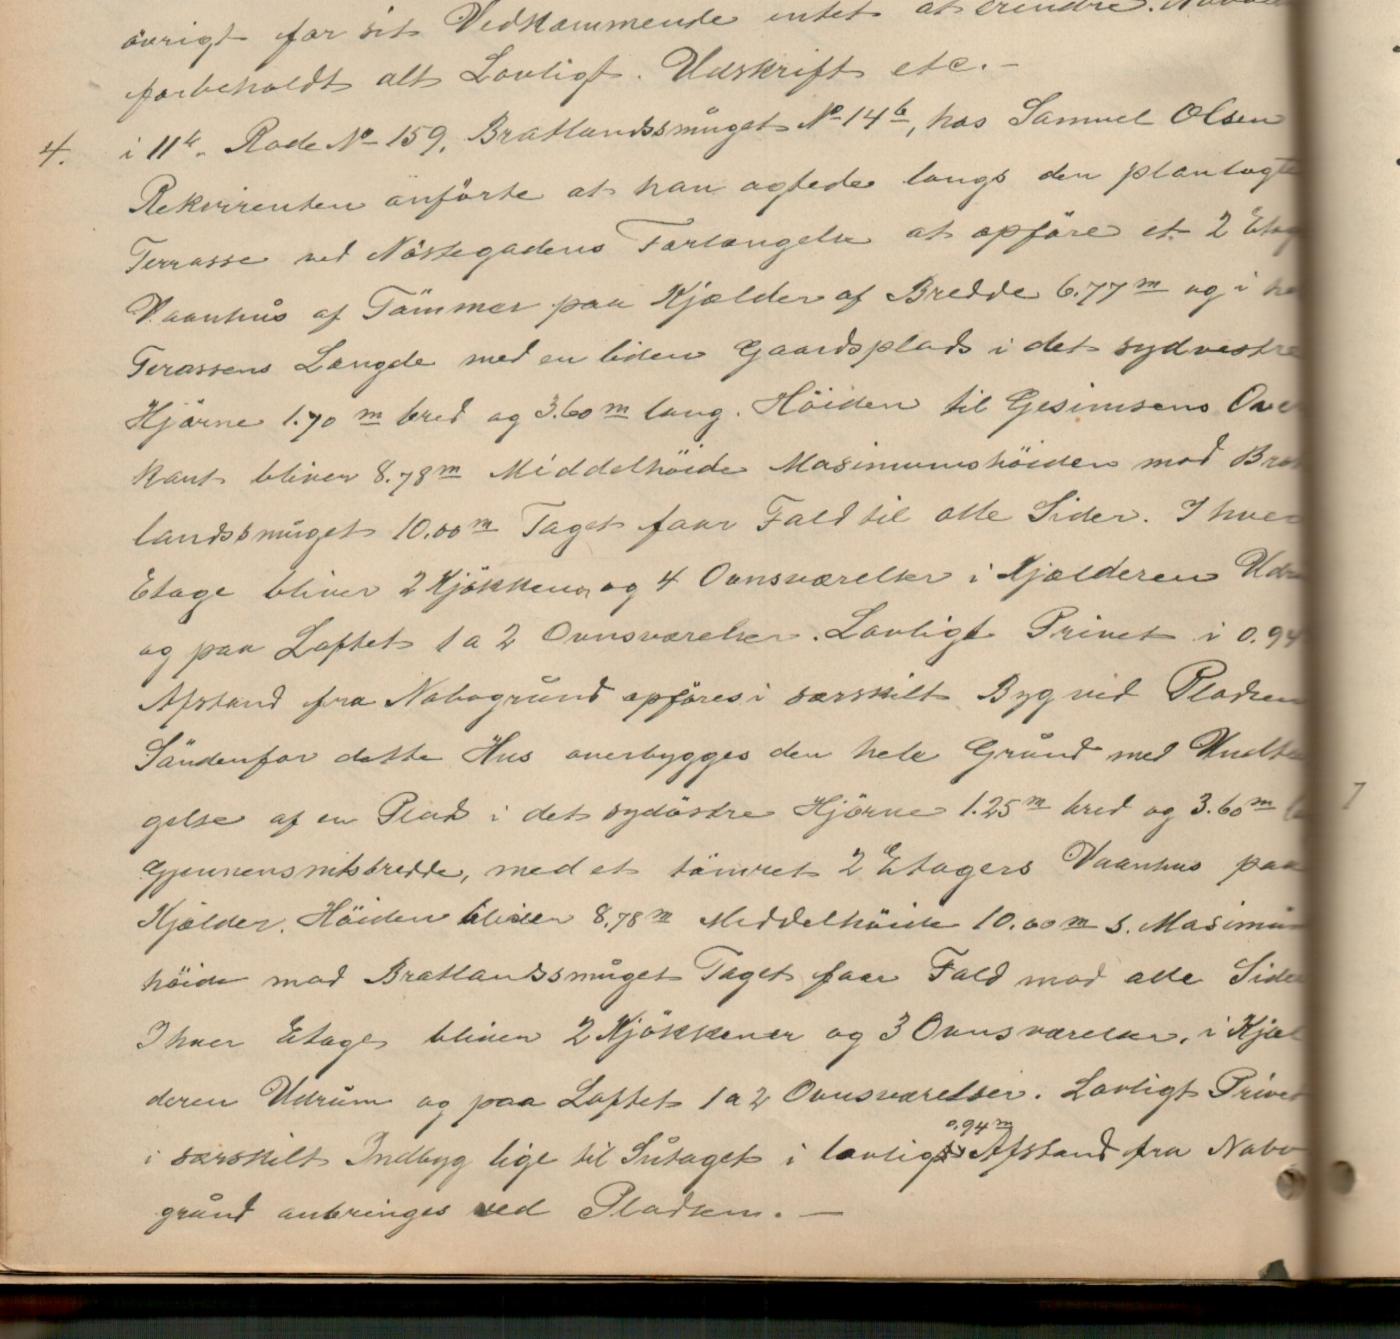 övrigt for sit Vedkommende intet at erindre.
forbeholdt alt Lovligt. Udskrift etc. —
4. i 11te Rode No 159, Bratlandssmuget No 14b, hos Samuel Olsen
Rekvirenten anförte at han agtede langs den planlagte
Terrasse ved Nöstegadens Forlængelse at opföre et 2 Etag
Vaanhus af Tömmer paa Kjælder af Bredde 6.77 m og i
Terassens Længde med en liden Gaardsplads i det sydvestre
Hjörne 1.70 m bred og 3.60 m lang. Höiden til Gesimsens Over
kant bliver 8.78 m Middelhöide Maximumshöiden mod Brat
landssmuget 10.00 m Taget faar Fald til alle Sider. I hver
Etage bliver 2 Kjökkener og 4 Ovnsværelser i Kjælderen Udr
og paa Loftet 1 a 2 Ovnsværelser. Lovligt Privet i 0.94
Afstand fra Nabogrund opföres i særskilt Byg ved Pladsen
Söndenfor dette Hus overbygges den hele Grund med Undta
gelse af en Plads i det sydöstre Hjörne 1.25 m bred og 3.60 m
Gjennemsnitsbredde, med et tömret 2 Etagers Vaanhus paa
Kjælder. Höiden bliver 8.78 m Middelhöide 10.00 m s. Maximum
höide mod Bratlandssmuget Taget faar Fald mod alle Sider
I hver Etage bliver 2 Kjökkener og 3 Ovnsværelser, i Kjæl
deren Udrum og paa Loftet 1 a 2 Ovnsværelser. Lovligt Privet
i særskilt Indbyg lige til Sutaget i lovlig 0.94 m Afstand fra Nabo
grund anbringes ved Pladsen. —